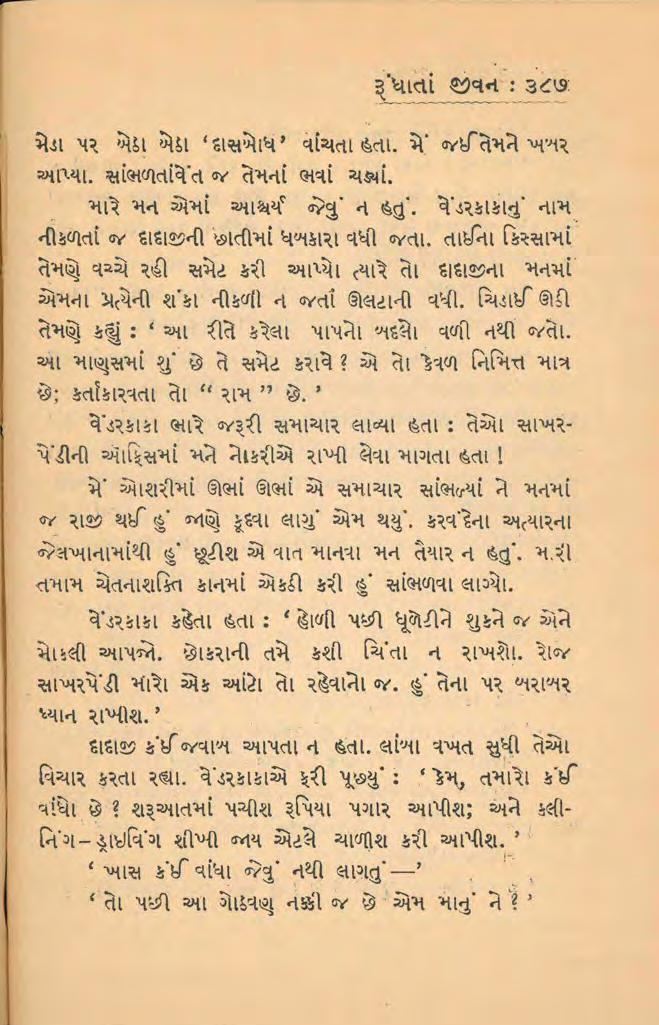 રૂંધાતાં જીવન : ૩૮૭
મેડા પર બેઠા બેઠા ‘દાસબોધ’ વાંચતા હતા. મેં જઈ તેમને ખબર
આપ્યા. સાંભળતાંવેંત જ તેમનાં ભવાં ચડ્યાં.
મારે મન એમાં આશ્ચર્ય જેવું ન હતું. વેંડરકાકાનું નામ
નીકળતાં જ દાદાજીની છાતીમાં ધબકારા વધી જતા. તાઈના કિસ્સામાં
તેમણે વચ્ચે રહી સમેટ કરી આપ્યો ત્યારે તો દાદાજીના મનમાં
એમના પ્રત્યેની શંકા નીકળી ન જતાં ઊલટાની વધી. ચિડાઈ ઊઠી
તેમણે કહ્યું : ‘આ રીતે કરેલા પાપનો બદલો વળી નથી જતો.
આ માણુસમાં શું છે તે સમેટ કરાવે ? એ તો કેવળ નિમિત્ત માત્ર
છે; કર્તાકારવતા તો “રામ” છે.’
વેંડરકાકા ભારે જરૂરી સમાચાર લાવ્યા હતા : તેઓ સાખર-
પેંડીની ઑફિસમાં મને નોકરીએ રાખી લેવા માગતા હતા !
મેં ઓશરીમાં ઊભાં ઊભાં એ સમાચાર સાંભળ્યાં ને મનમાં
જ રાજી થઈ હું જાણે કૂદવા લાગું એમ થયું. કરવંદેના અત્યારના
જેલખાનામાંથી હું છૂટીશ એ વાત માનવા મન તૈયાર ન હતું. મારી
તમામ ચેતનાશક્તિ કાનમાં એકઠી કરી હું સાંભળવા લાગ્યો.
વેંડરકાકા કહેતા હતા : ‘હોળી પછી ધૂળેટીને શુકને જ એને
મોકલી આપજો. છોકરાની તમે કશી ચિંતા ન રાખશો. રોજ
સાખરપેંડી મારો એક આંટો તો રહેવાનો જ. હું તેના પર બરાબર
ધ્યાન રાખીશ.’
દાદાજી કંઈ જવાબ આપતા ન હતા. લાંબા વખત સુધી તેઓ
વિચાર કરતા રહ્યા. વેંડરકાકાએ ફરી પૂછ્યું : ‘કેમ, તમારો કંઈ
વાંધો છે ? શરૂઆતમાં પચીશ રૂપિયા પગાર આપીશ; અને કલી-
નિંગ–ડ્રાઇવિંગ શીખી જાય એટલે ચાળીશ કરી આપીશ.’
‘ખાસ કંઈ વાંધા જેવું નથી લાગતું —’
‘તો પછી આ ગોઠવણ નક્કી જ છે એમ માનું ને ?’